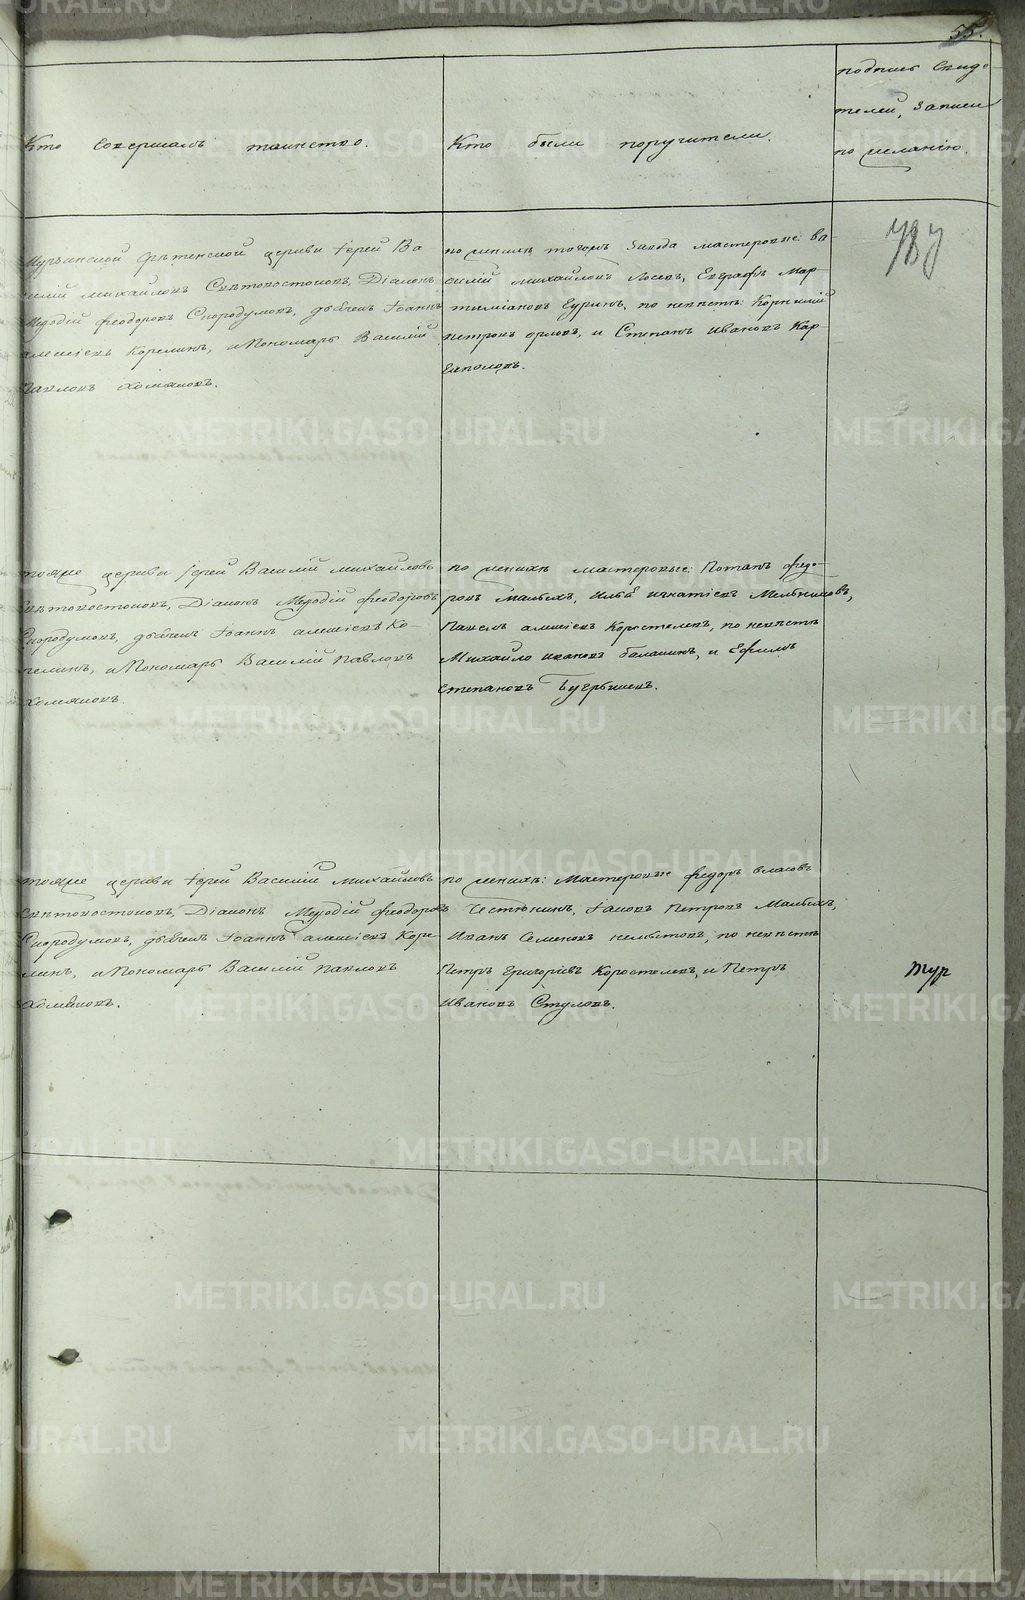 55.
Кто совершалъ таинство.
Кто были поручители.
подпись свиде-
телей, записи
по желанію.
Мурзинской Срѣтенской церкви Іерей Ва
силій Михайловъ Свѣтовостоковъ, Діаконъ
Меѳодій Феодоровъ Скородумовъ, дьячекъ Іоаннъ
алексѣевъ Корелинъ, и Пономарь Василій
Павловъ Хомяковъ.
по женихѣ тогожъ завода мастеровые: Ва-
силій Михайловъ Лосевъ, Евграфъ Мар-
тиміановъ по невѣстѣ: Корнилій
петровъ орловъ, и Степанъ Ивановъ Кар
паполовъ.
тояже церкви Іерей Василій Михайловъ
Свѣтовостоковъ, Діаконъ Меѳодій Феодоровъ
Скородумовъ, дьячекъ Іоаннъ алексѣевъ Ко-
релинъ, и Пономарь Василій Павловъ
Хомяковъ.
по женихѣ мастеровые: Потапъ федо-
ровъ Малыхъ, Илья игнатіевъ Мельниковъ,
Павелъ алексѣевъ Коростелевъ, по невѣстѣ
Михайло ивановъ балакинъ, и Ефимъ
степановъ
тояже церкви Іерей Василій Михайловъ
Свѣтовостоковъ, Діаконъ Меѳодій Феодоровъ
Скородумовъ, дьячекъ Іоаннъ алексѣевъ Коре-
линъ, и Пономарь Василій павловъ
Хомяковъ.
по женихѣ: Мастеровые федоръ власовъ
Іаковъ Петровъ Малыхъ,
Иванъ Семеновъ по невѣстѣ
Петръ Григорьевъ Коростелевъ, и Петръ
Ивановъ Стуловъ.
тур
METRIKI.GASO-URAL.RU